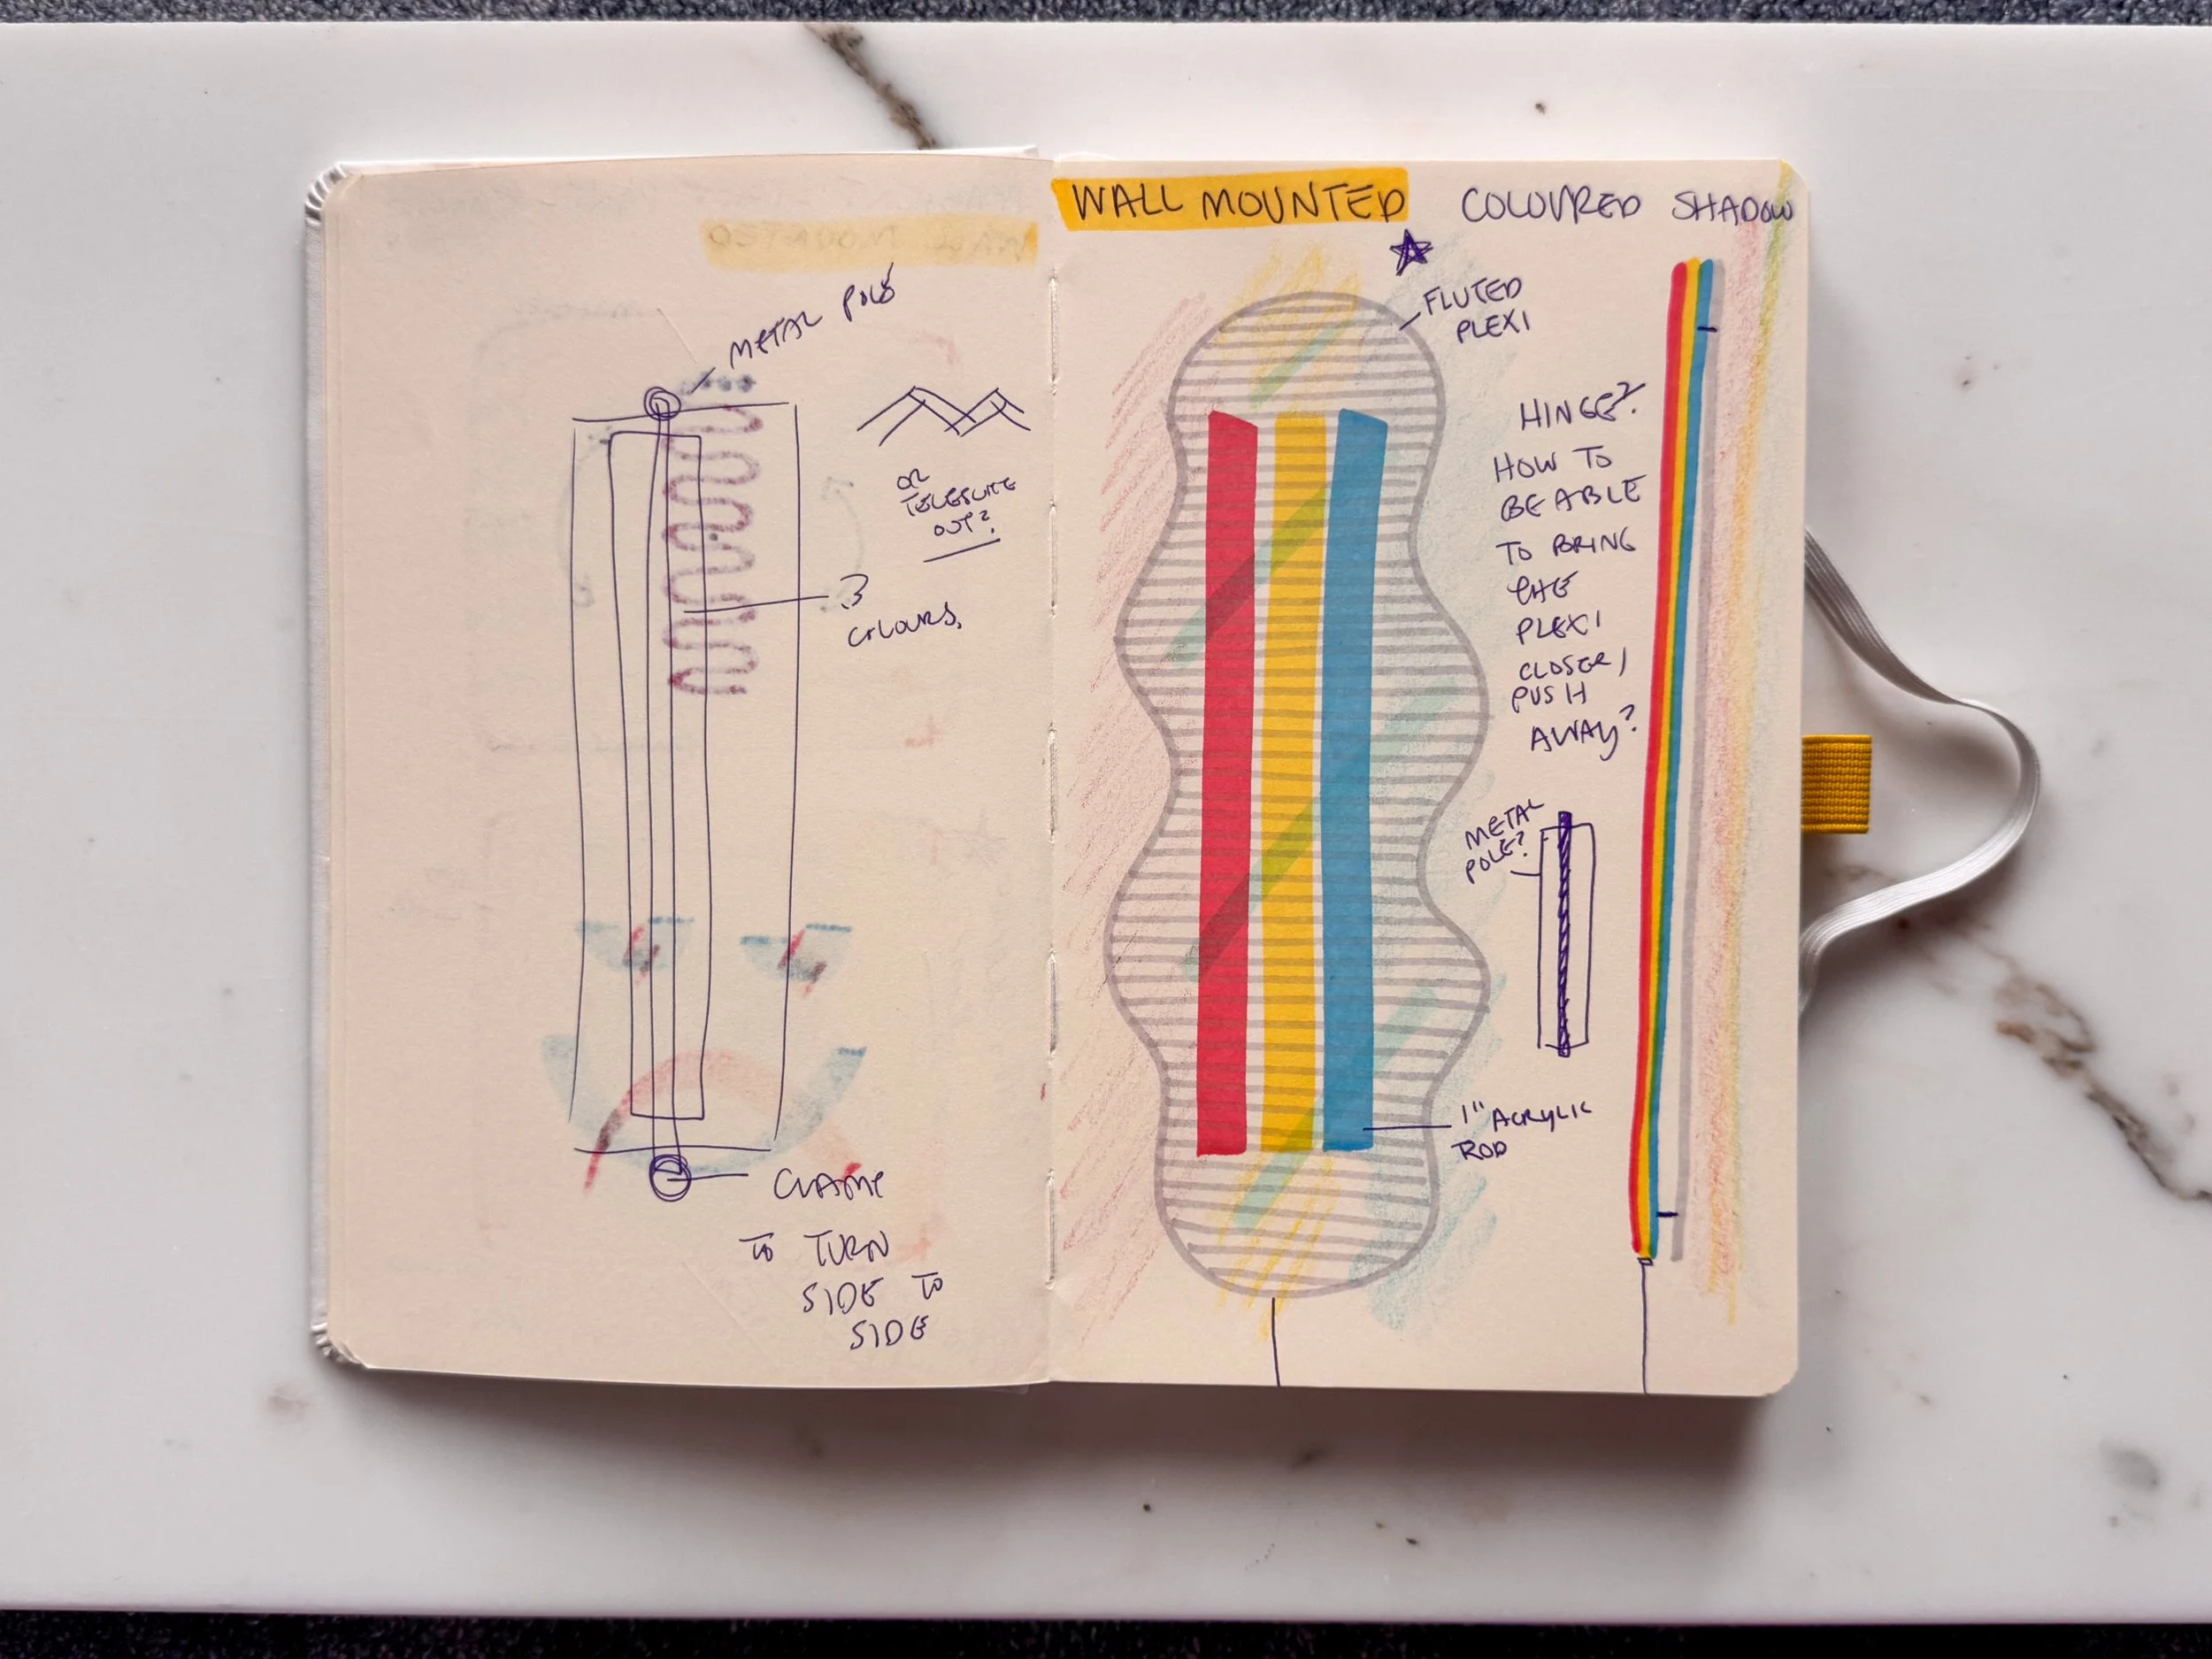 METAL POLE
OR
TELESCOPE
OUT?
3
COLOURS.
CLAMP
TO TURN
SIDE TO
SIDE
WALL MOUNTED COLOURED SHADOW
FLUTED
PLEXI
HINGE?
HOW TO
BE ABLE
TO BRING
THE
PLEXI
CLOSER/
PUSH
AWAY?
METAL
POLE?
1" ACRYLIC
ROD